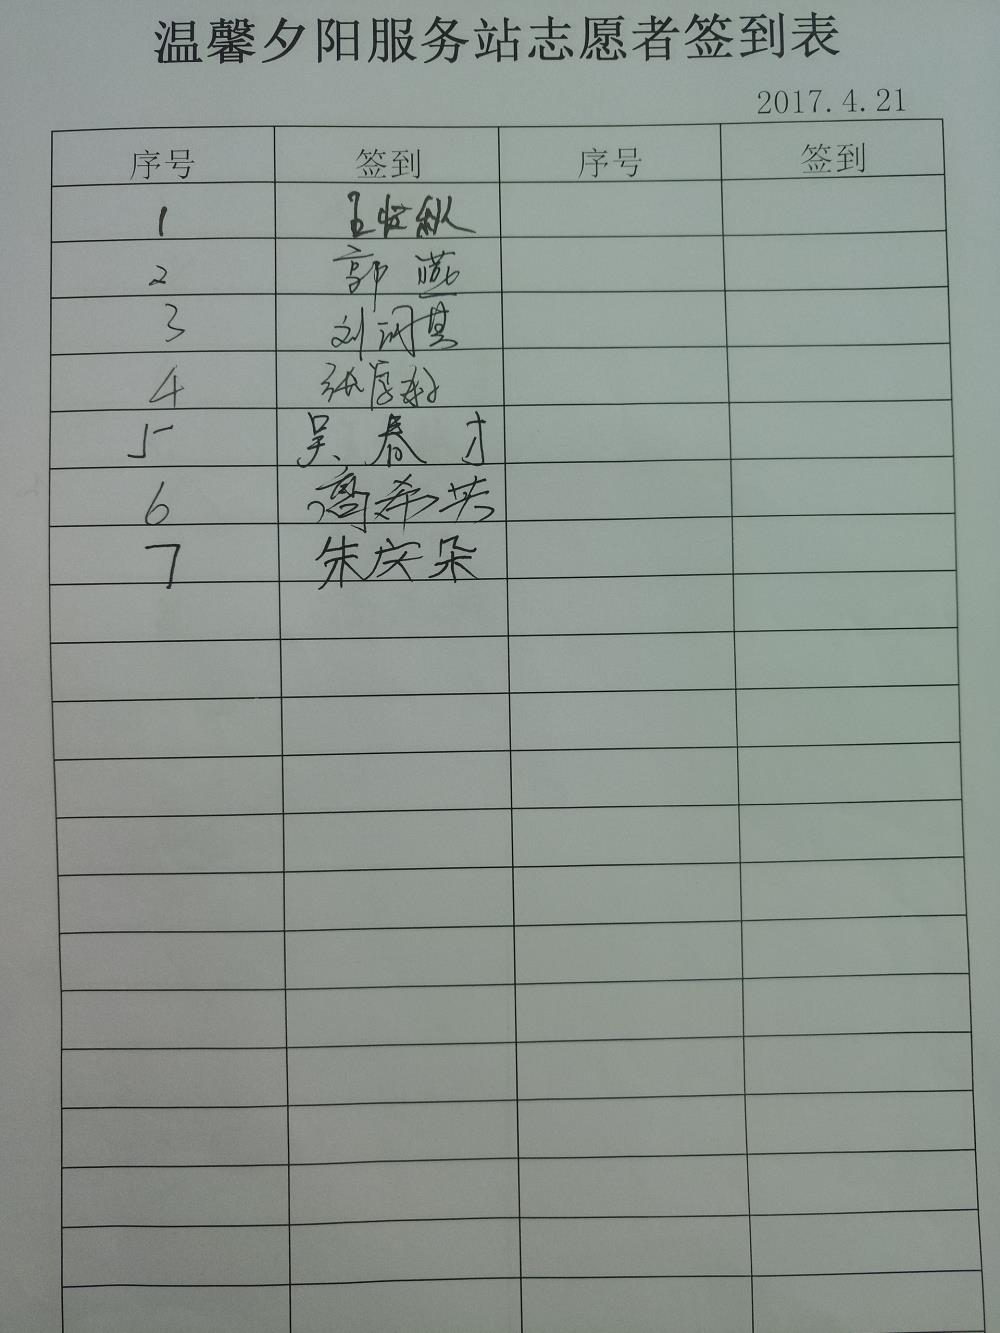 温馨夕阳服务站志愿者签到表
2017.4.21
序号 签到 序号 签到
1 王
2 郭燕
3 刘润其
4 张
5 吴春才
6 高希英
7 朱庆朵